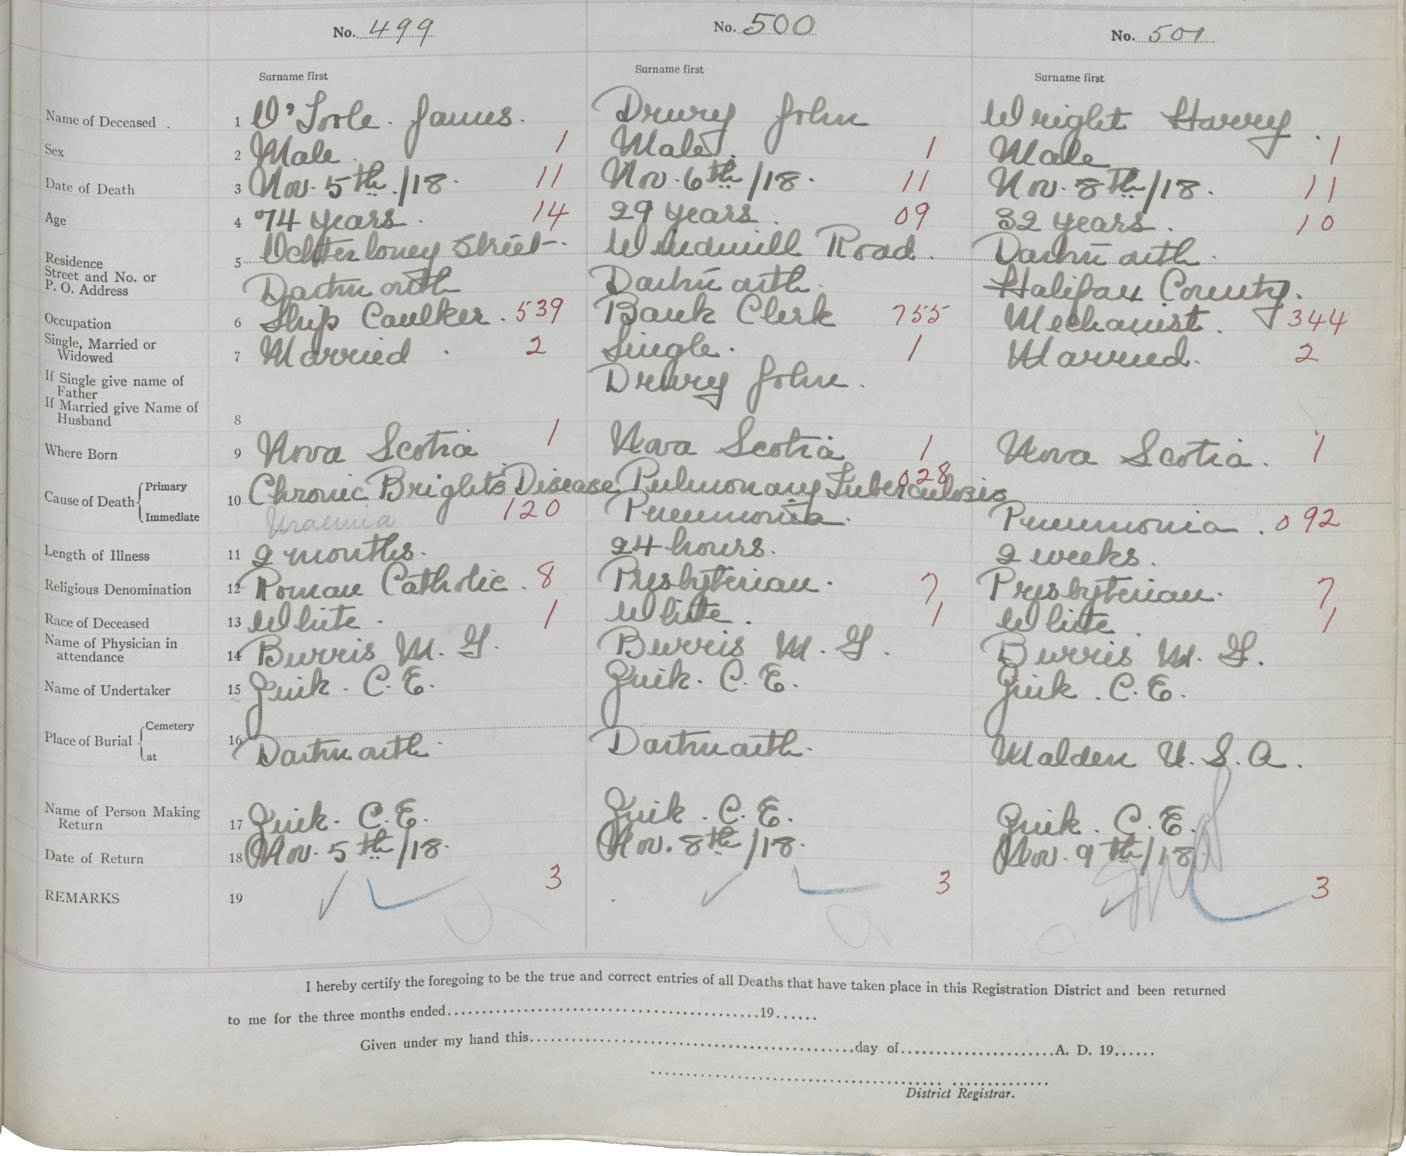 No. 499 No. 500 No. 501
Surname first Surname first Surname first
Name of Deceased . 1 O'Toole. James. Drury John Wright Harry.
Sex 2 Male. 1 Male. 1 Male 1
Date of Death 3 Nov. 5th/18. 11 Nov. 6th/18. 11 Nov. 8th/18. 11
Age 4 74 years. 14 29 years. 09 32 years. 10
Residence 5 Ochterloney Street. Windmill Road. Dartmouth.
Street and No. or
P. O. Address Dartmouth Dartmouth. Halifax County.
Occupation 6 Ship Caulker. 539 Bank Clerk 755 Mechanist. 344
Single, Married or
Widowed 7 Married. 2 Single. 1 Married. 2
If Single give name of
Father Drury John.
If Married give Name of
Husband 8
Where Born 9 Nova Scotia 1 Nova Scotia 1 Nova Scotia. 1
Cause of Death Primary 10 Chronic Bright's Disease Pulmonary Tuberculosis 028
Immediate Uraemia 120 Pneumonia. Pneumonia. 092
Length of Illness 11 2 months. 24 hours. 2 weeks.
Religious Denomination 12 Roman Catholic. 8 Presbyterian. 7 Presbyterian. 7
Race of Deceased 13 White. 1 White. 1 White. 1
Name of Physician in
attendance 14 Burris M. G. Burris M. G. Burris M. G.
Name of Undertaker 15 Zink. C. E. Zink. C. E. Zink. C. E.
Place of Burial Cemetery 16
at Dartmouth. Dartmouth. Malden U. S. A.
Name of Person Making
Return 17 Zink. C. E. Zink. C. E. Zink. C. E.
Date of Return 18 Nov. 5th/18. Nov. 8th/18. Nov. 9th/18
REMARKS 19 3 3 3
I hereby certify the foregoing to be the true and correct entries of all Deaths that have taken place in this Registration District and been returned
to me for the three months ended 19
Given under my hand this day of A. D. 19
District Registrar.